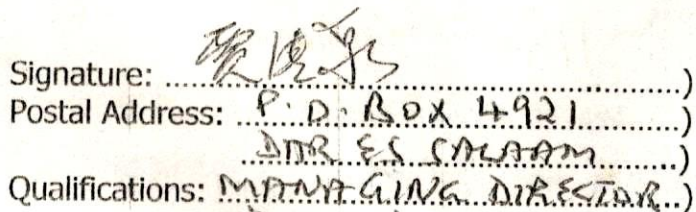 Signature: ........................)
Postal Address: P.O. BOX 4921)
DAR ES SALAAM)
Qualifications: MANAGING DIRECTOR)